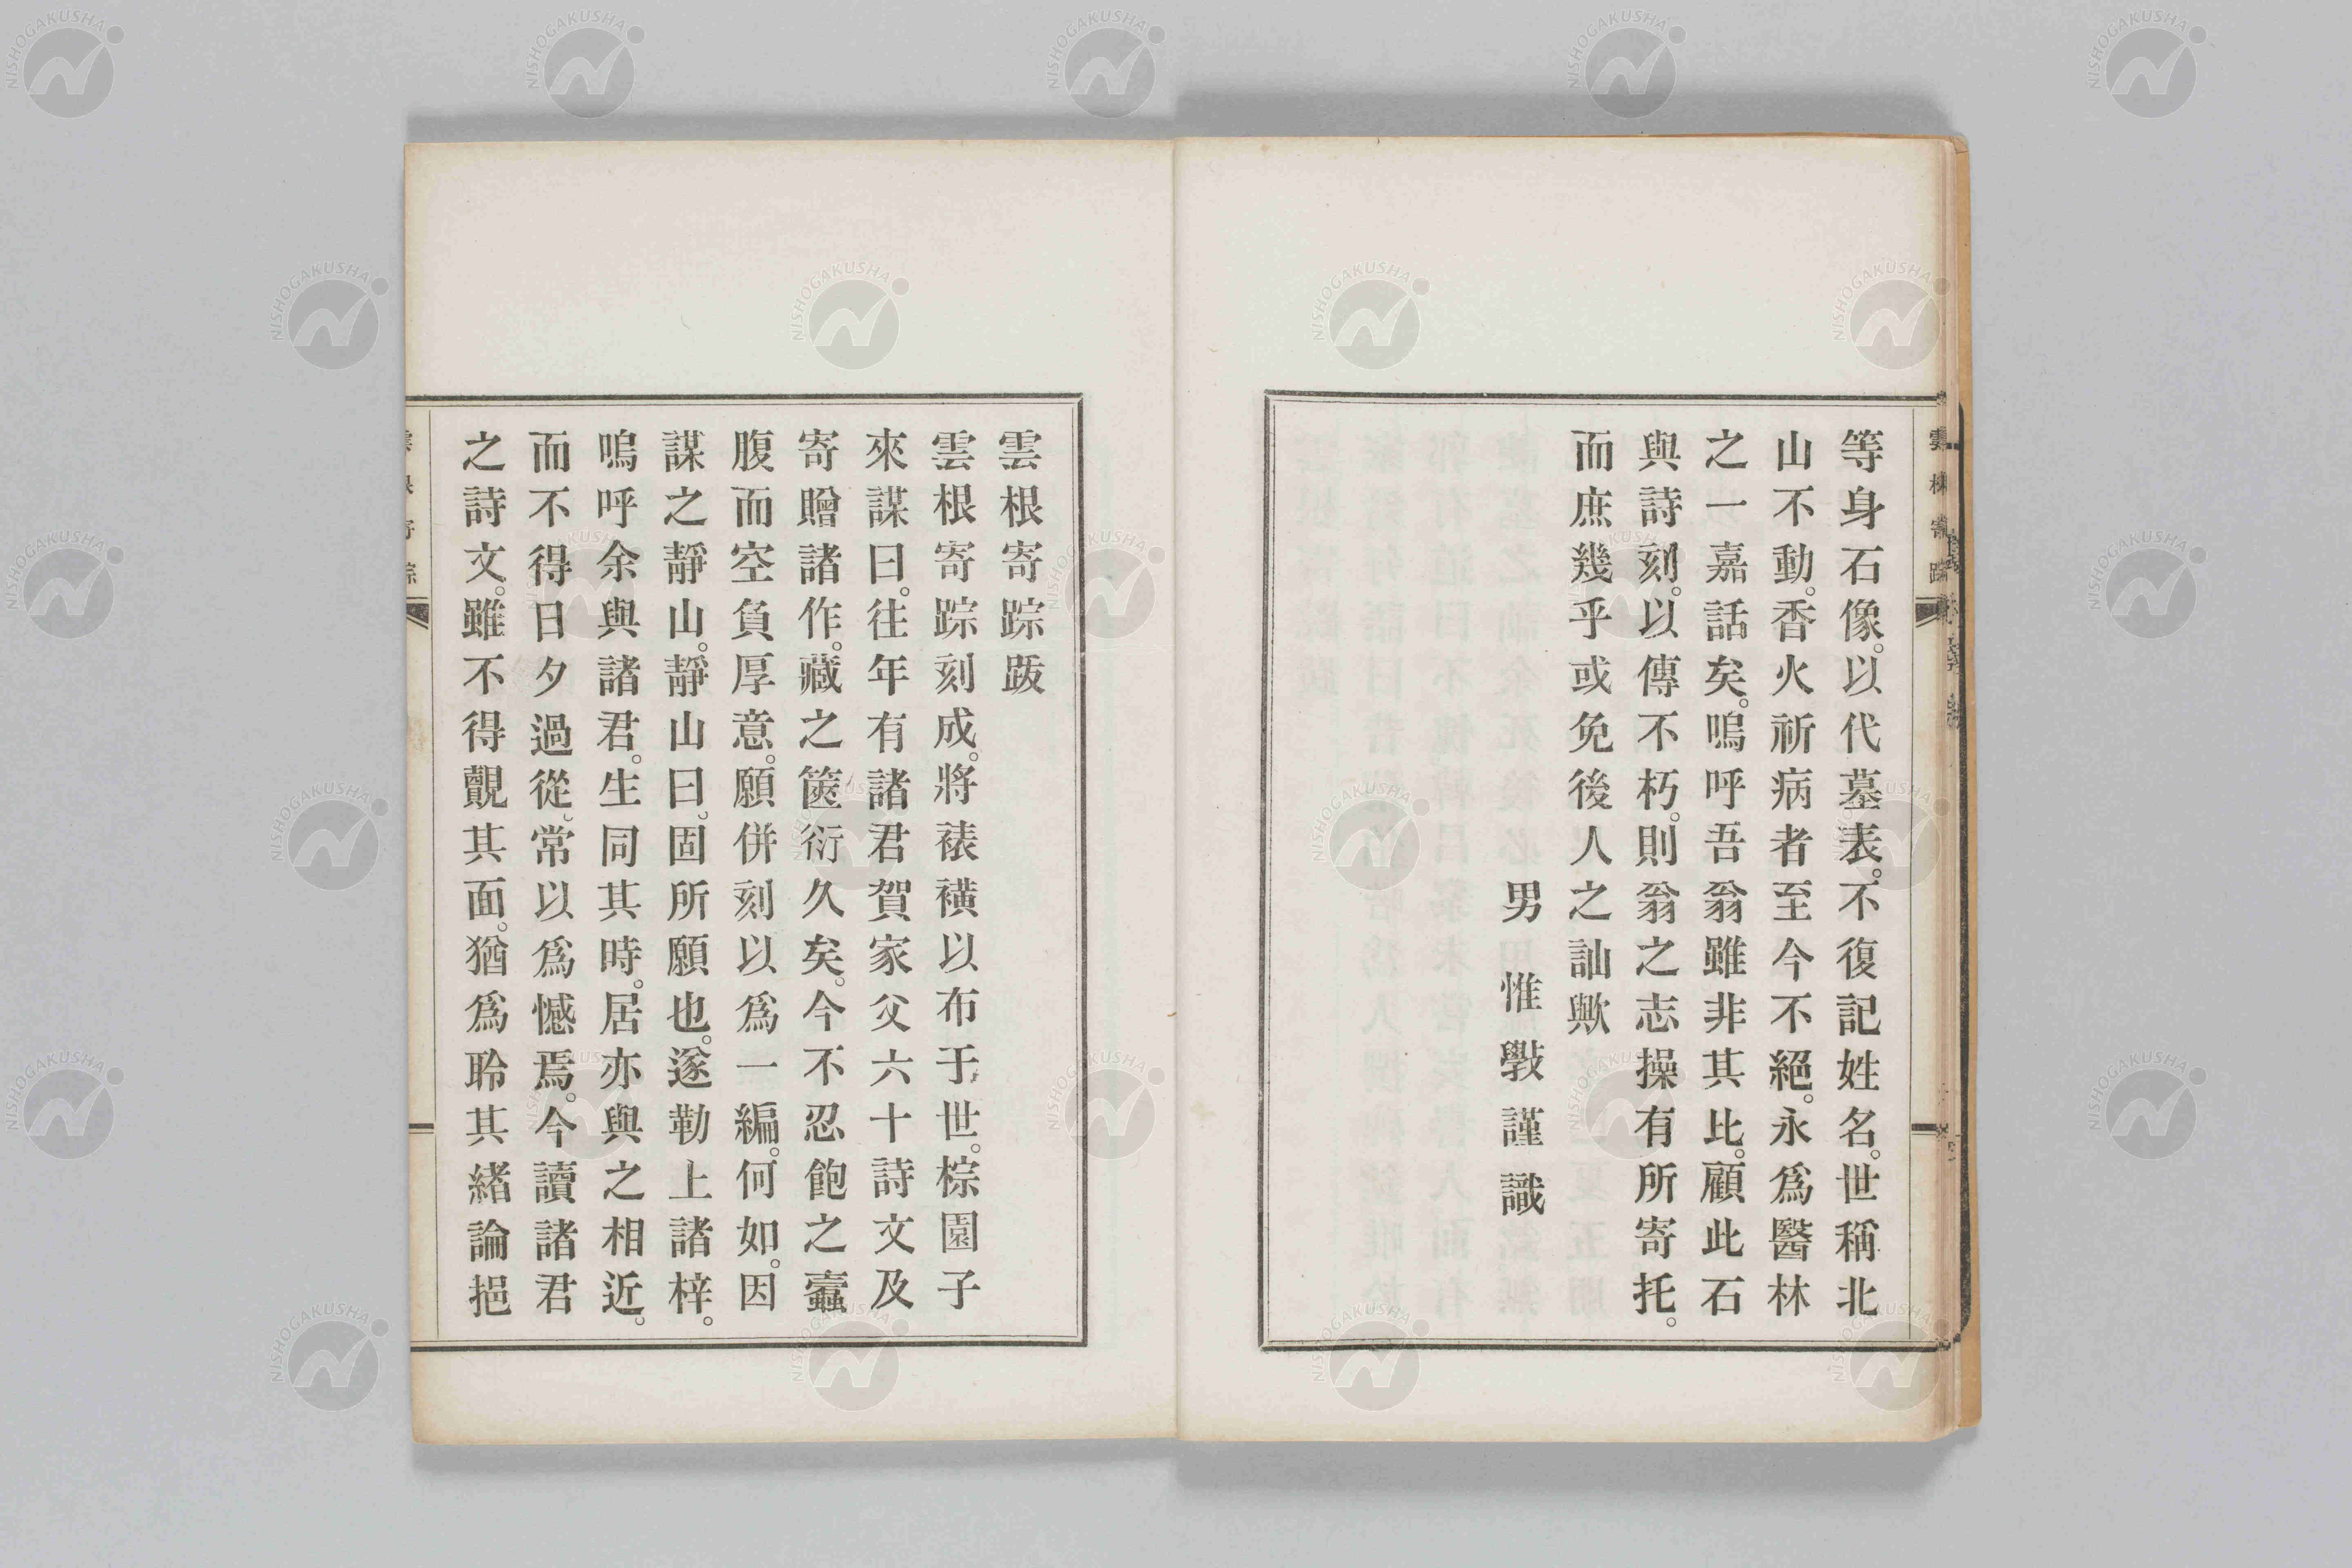 等身石像。以代墓表。不復記姓名。世稱北
山不動。香火祈病者至今不絕。永爲醫林
之一嘉話矣。嗚呼吾翁雖非其比。顧此石
與詩刻。以傳不朽。則翁之志操有所寄托。
而庶幾乎或免後人之訕歟
男 惟斅謹識
雲根寄踪跋
雲根寄踪刻成。將裱橫以布于世。棕園子
來謀曰。往年有諸君賀家父六十詩文及
寄贈諸作。藏之篋衍久矣。今不忍飽之蠹
腹而空負厚意。願併刻以爲一編。何如。因
謀之靜山。靜山曰。固所願也。遂勒上諸梓。
嗚呼余與諸君。生同其時。居亦與之相近。
而不得日夕過從。常以爲憾焉。今讀諸君
之詩文。雖不得覿其面。猶爲聆其緒論挹
NISHOGAKUSHA